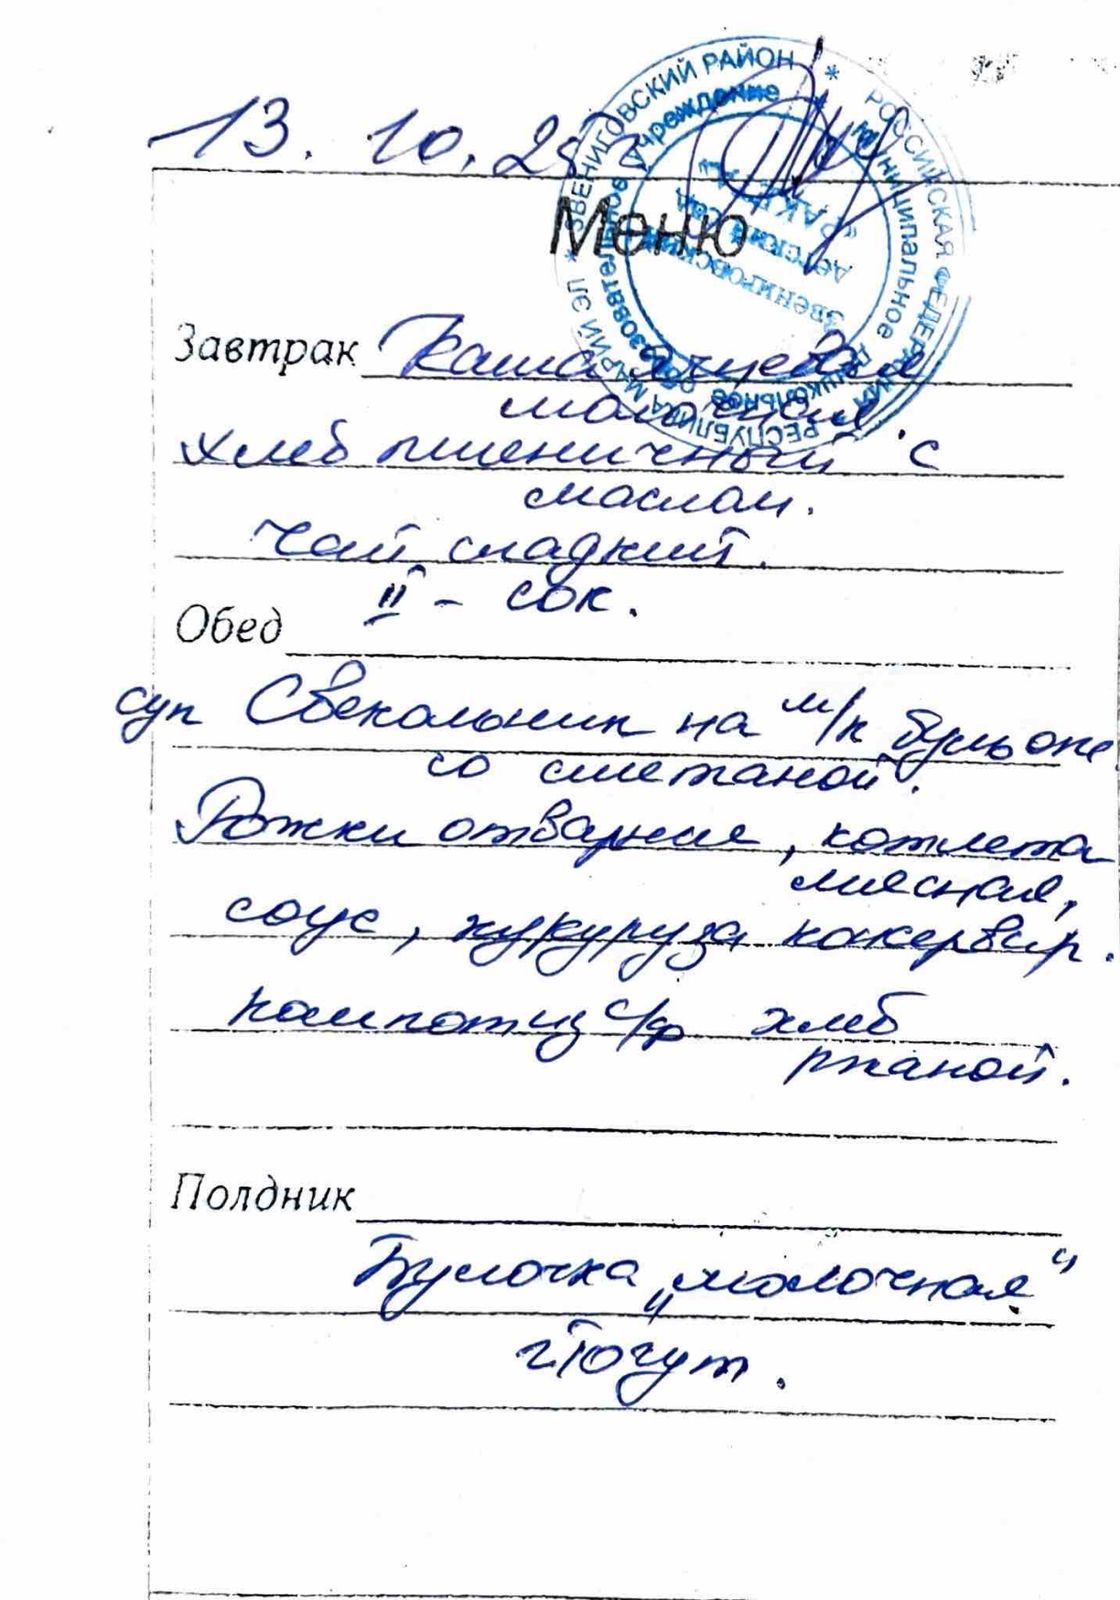 13. 10. 25г
Меню
РОССИЙСКАЯ ФЕДЕРАЦИЯ * РЕСПУБЛИКА МАРИЙ ЭЛ * ЗВЕНИГОВСКИЙ РАЙОН *
муниципальное дошкольное образовательное учреждение
Звениговский
детский сад
"РАКЕТА"
Завтрак Каша
молочная.
Хлеб пшеничный с
маслом.
Чай сладкий.
II - сок.
Обед
суп Свекольник на м/к бульоне
со сметаной.
Рожки отварные, котлета
мясная,
соус, кукуруза консервир.
компот из с/ф хлеб
ржаной.
Полдник
Булочка „молочная"
йогут.